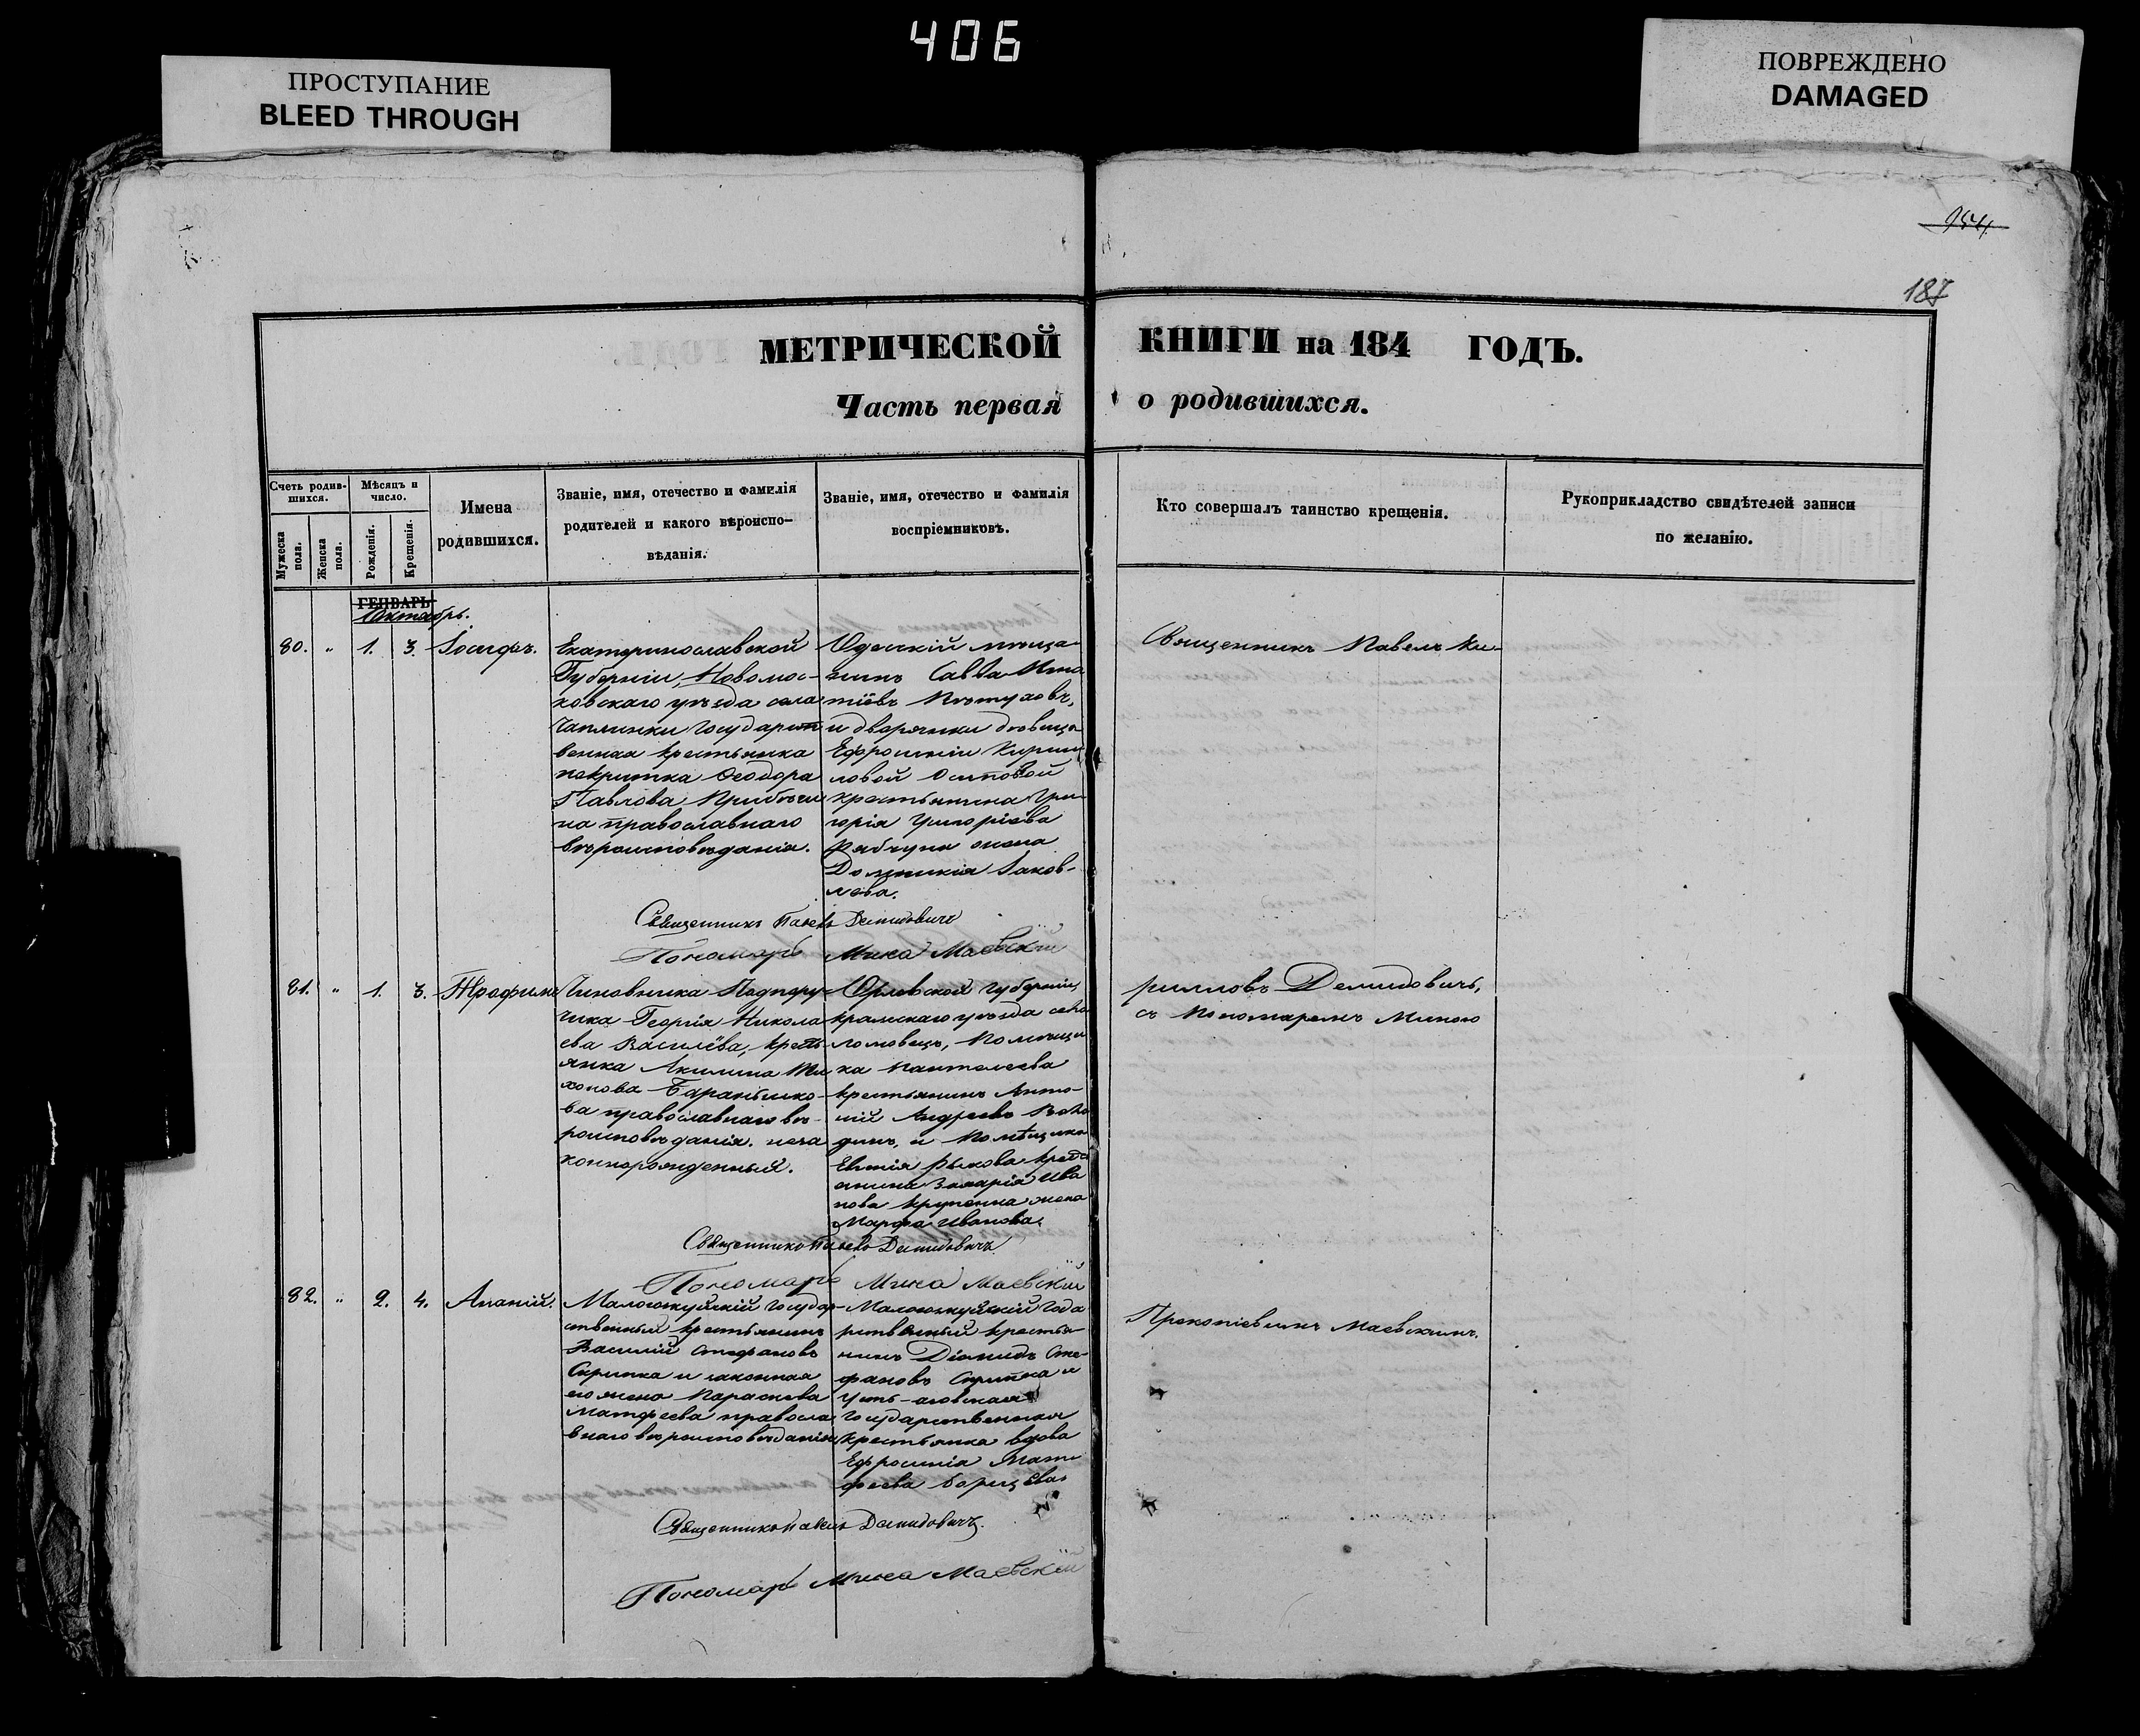 406
ПРОСТУПАНИЕ
BLEED THROUGH
ПОВРЕЖДЕНО
DAMAGED
187
МЕТРИЧЕСКОЙ КНИГИ на 184 ГОДЪ.
Часть первая о родившихся.
Счетъ родив-
шихся.
Мужеска пола.
Женска пола.
Мѣсяцъ и
число.
Рожденія.
Крещенія.
Имена
родившихся.
Званіе, имя, отечество и фамилія
родителей и какого вѣроиспо-
вѣданія.
Званіе, имя, отечество и фамилія
воспріемниковъ.
Кто совершалъ таинство крещенія.
Рукоприкладство свидѣтелей записи
по желанію.
ГЕНВАРЬ
Октябрь.
80. " 1. 3. Іосифъ.
Екатеринославской
Губерніи, Новомос-
ковскаго уѣзда села
Чаплинки Государст
венная крестьянка
покритка Феодора
Павлова
на православнаго
вѣроисповѣданія.
Одесскій мѣща-
нинъ Савва
Пѣтуховъ,
и дворянки дѣвицы
Ефросиніи Кирил
ловой Осиповой
крестьянина Гри-
горія Григоріева
Рябчуна жена
Домникія Іаков-
лева.
Священникъ Павелъ Демидовичъ
Пономарь Мина Маевскій
81. " 1. 3. Трофимъ
Чиновника Подпору-
чика Георгія Никола
ева Василёва, кресть
янка Акилина Ти
хонова
ва православнаго вѣ-
роисповѣданія. неза
коннорожденный.
Орловской губерніи
уѣзда села
Помѣщи
ка Пантелеева
крестьянинъ Анто-
ній Андреевъ
и Помѣщика
Евтія Рыкова
Захарія Ива
нова жена
Марфа Иванова.
Священникъ Павелъ Демидовичъ
Пономарь Мина Маевскій
82. " 2. 4. Ананій.
государ-
ственный крестьянинъ
Василій Стефановъ
Скрипка и законная
его жена Параскева
Матфеева правосла
внаго вѣроисповѣданія
Госуда
рственный крестья-
нинъ Діомидъ Сте-
фановъ Скрипка и
Государственная
крестьянка вдова
Ефросинія Мат
феева
Священникъ Павелъ Демидовичъ.
Пономарь Мина Маевскій
Священникъ Павелъ Ки-
рилловъ Демидовичъ,
съ Пономаремъ Миною
Прокопіевымъ Маевскимъ.